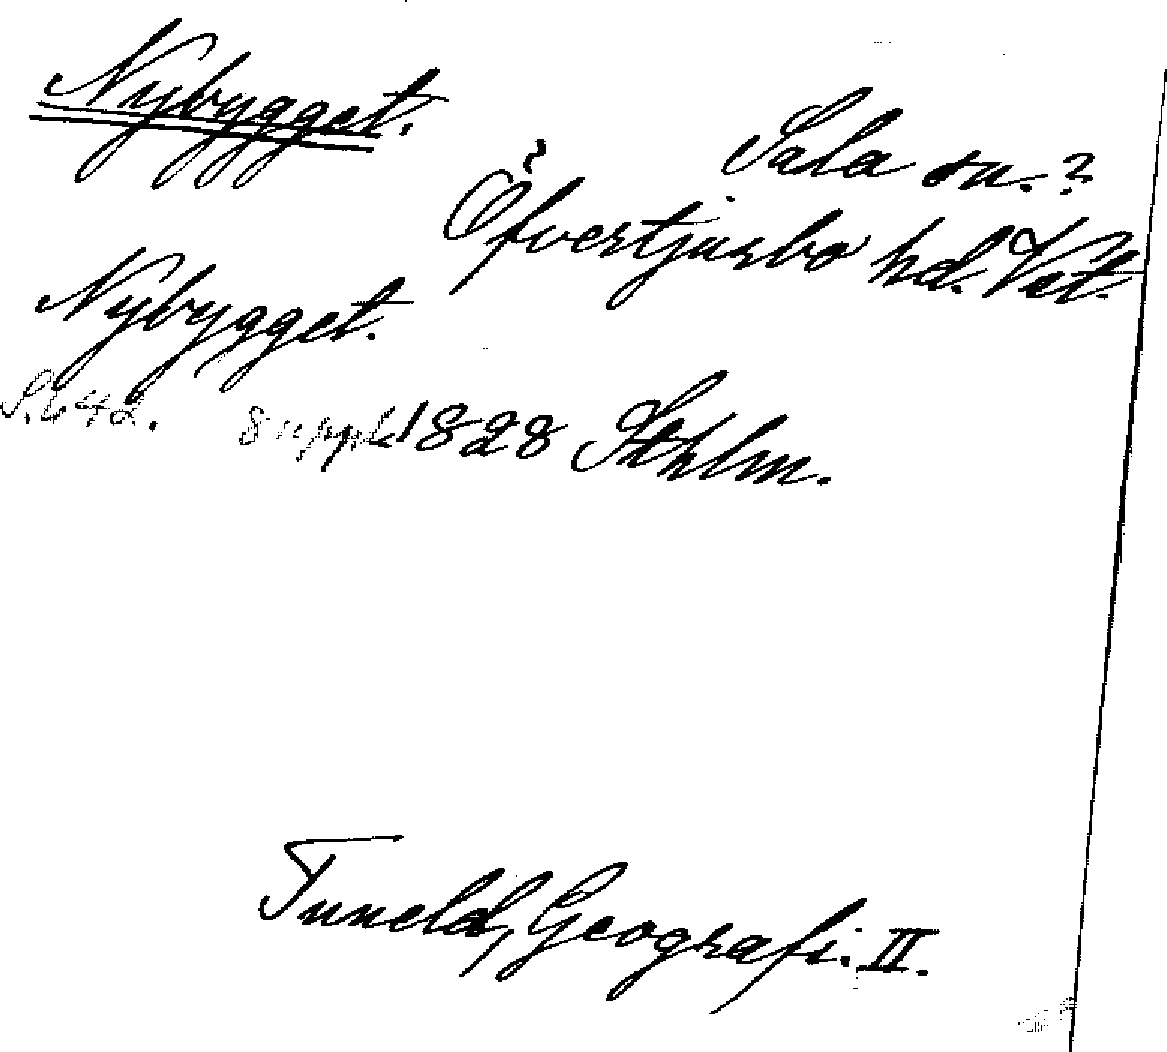 Nybygget.
Sala sn.?
Öfvertjurbo hd. Vstm.
Nybygget.
S. 642. suppl. 1828 Sthlm.
Tuneld, Geografi. II.